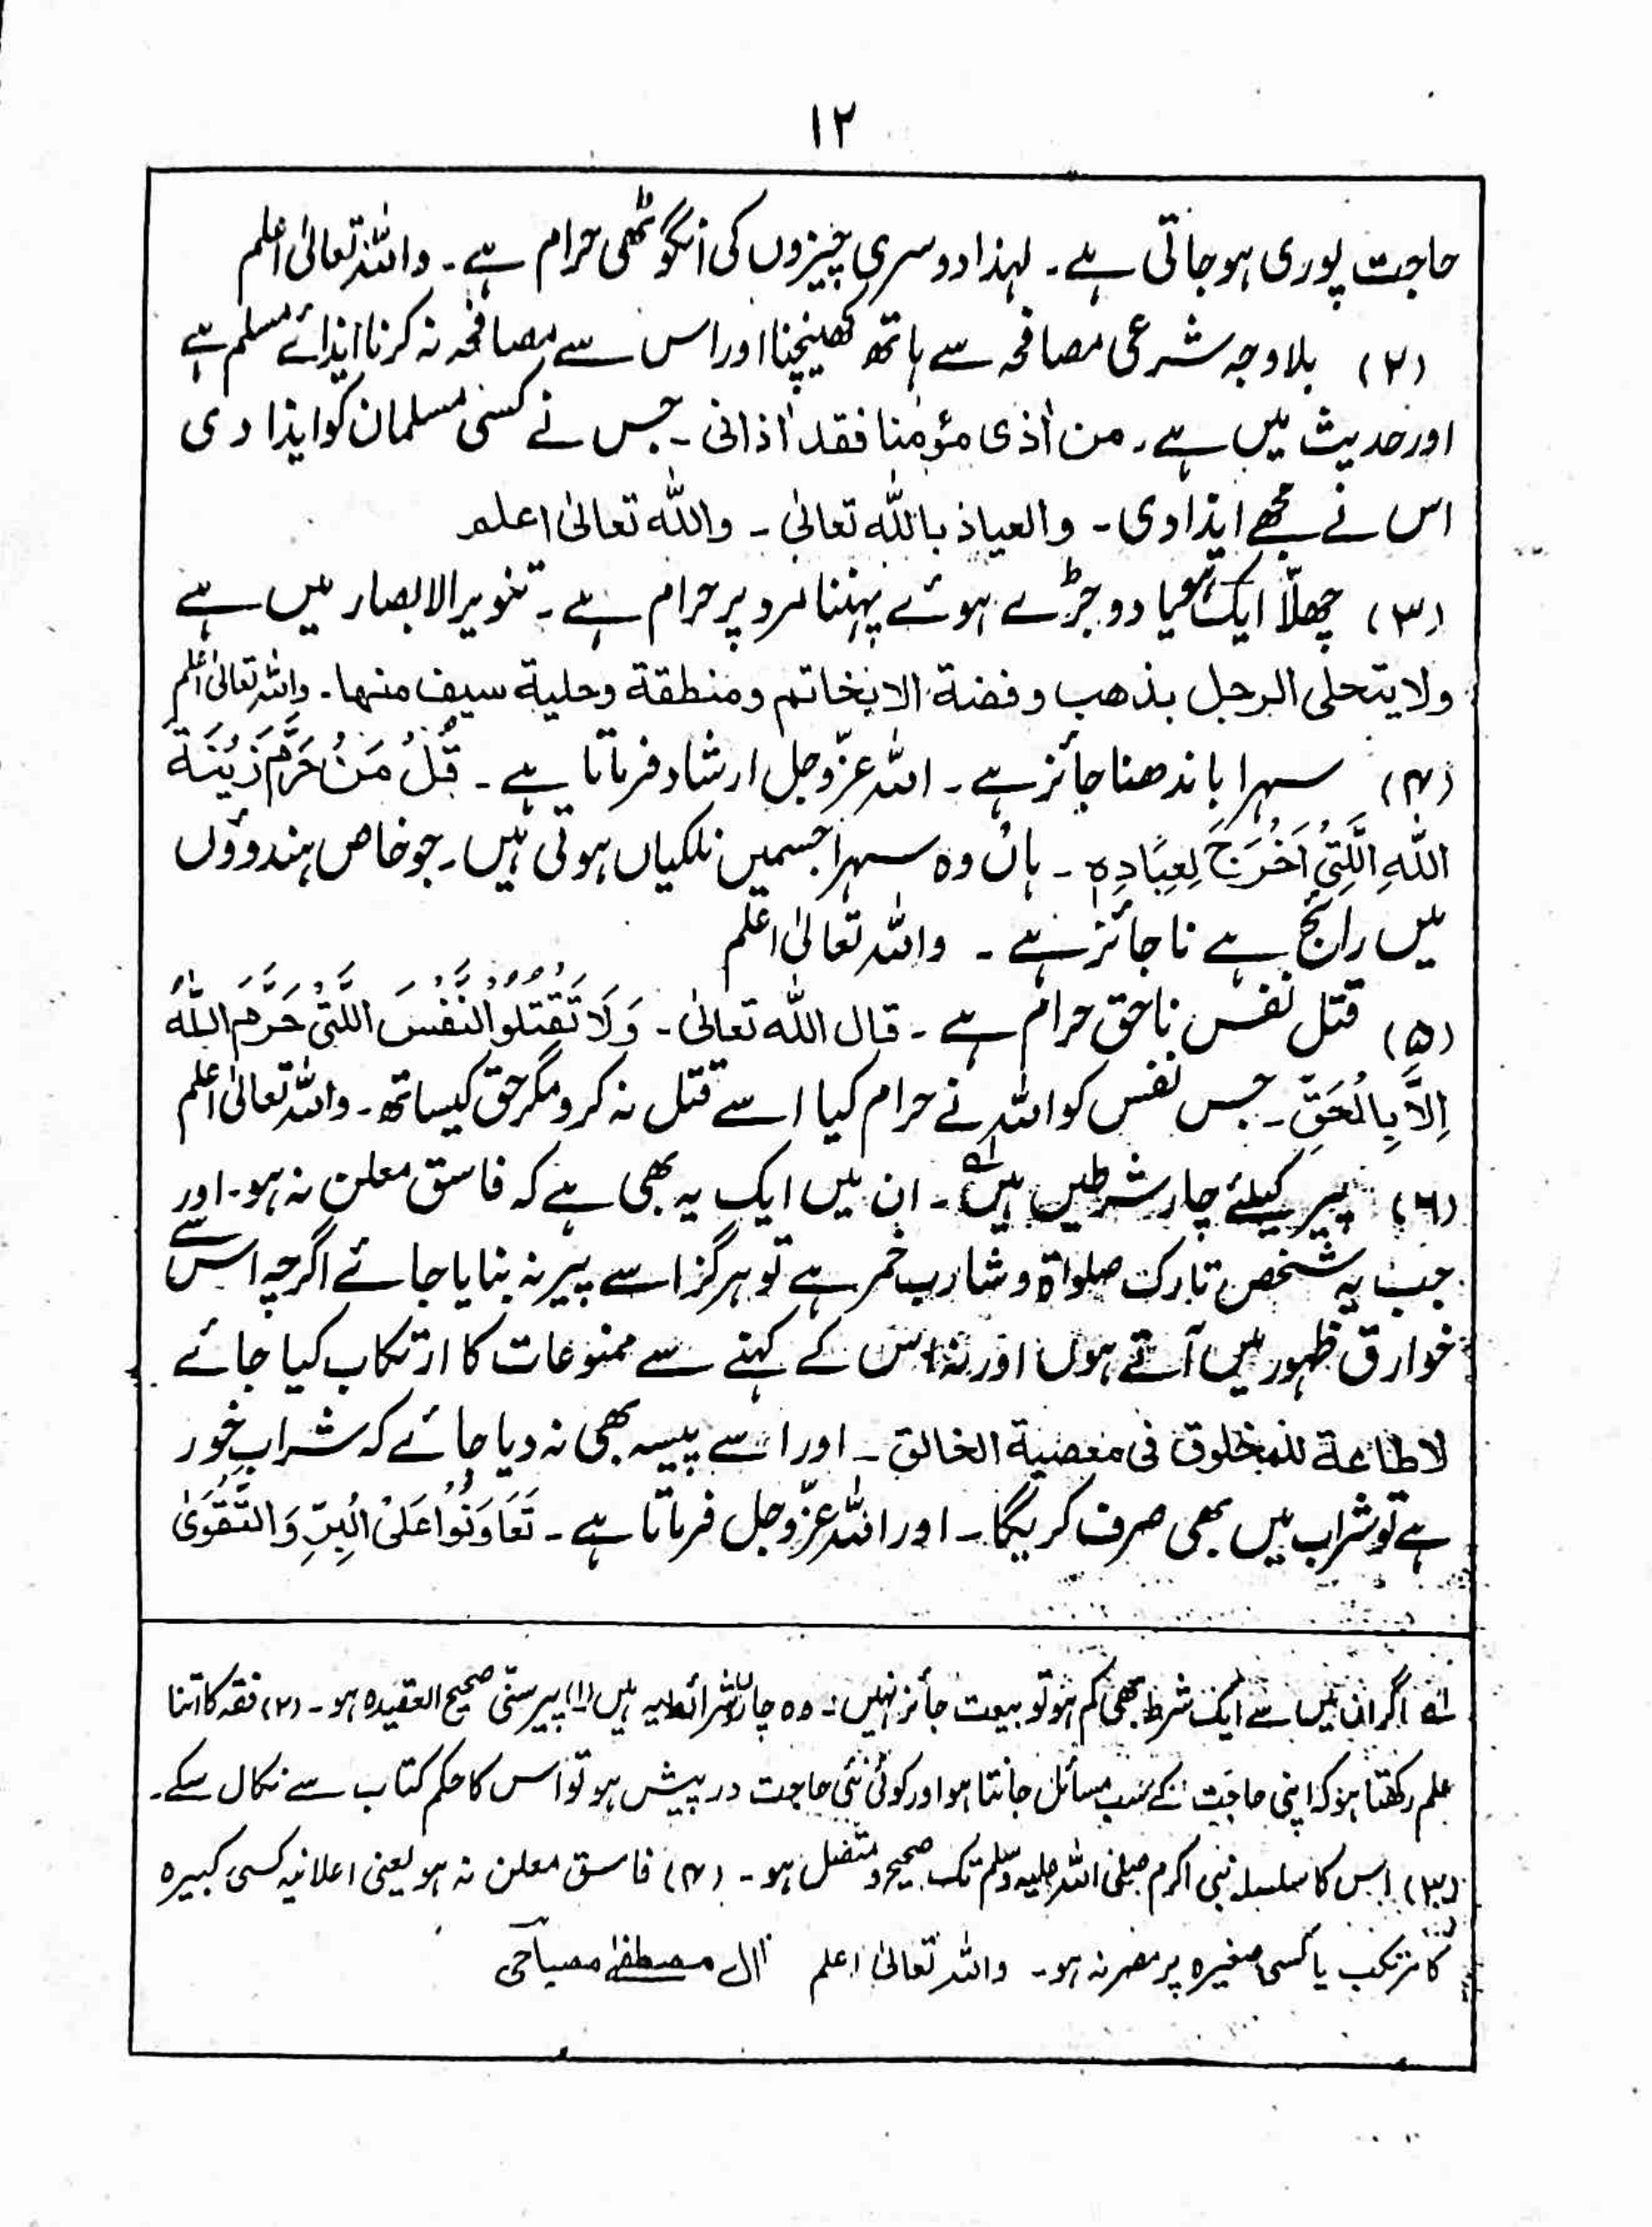 ۱۲
حاجت پوری ہوجاتی ہے۔ لہذا دوسری چیزوں کی انگوٹھی حرام ہے۔ واللہ تعالیٰ اعلم
(۲) بلاوجہ شرعی مصافحہ سے ہاتھ کھینچنا اور اس سے مصافحہ نہ کرنا ایذائے مسلم ہے
اور حدیث میں ہے۔ من اٰذی مؤمنا فقد اٰذانی۔ جس نے کسی مسلمان کو ایذا دی
اس نے مجھے ایذا دی۔ والعیاذ باللہ تعالیٰ۔ واللہ تعالیٰ اعلم
(۳) چھلّا ایک ہو یا دو جڑے ہوئے پہننا مرد پر حرام ہے۔ تنویر الابصار میں ہے
ولا یتحلی الرجل بذھب و فضۃ الا بخاتم و منطقۃ وحلیۃ سیف منہا۔ واللہ تعالیٰ اعلم
(۴) سہرا باندھنا جائز ہے۔ اللہ عزّوجل ارشاد فرماتا ہے۔ قُلْ مَنْ حَرَّمَ زِیْنَةَ
اللّٰہِ الَّتِیْ اَخْرَجَ لِعِبَادِہٖ۔ ہاں وہ سہرا جسمیں نلکیاں ہوتی ہیں۔ جو خاص ہندوؤں
میں رائج ہے ناجائز ہے۔ واللہ تعالیٰ اعلم
(۵) قتل نفس ناحق حرام ہے۔ قال اللہ تعالیٰ۔ وَلَا تَقْتُلُوا النَّفْسَ الَّتِیْ حَرَّمَ اللّٰہُ
اِلَّا بِالْحَقِّ۔ جس نفس کو اللہ نے حرام کیا اسے قتل نہ کرو مگر حق کیساتھ۔ واللہ تعالیٰ اعلم
(۶) پیر کیلئے چار شرطیں ہیں۔ ان میں ایک یہ بھی ہے کہ فاسق معلن نہ ہو۔ اور
جب یہ شخص تارک صلواۃ و شارب خمر ہے تو ہرگز اسے پیر نہ بنایا جائے اگرچہ اس سے
خوارق ظہور میں آتے ہوں اور نہ اس کے کہنے سے ممنوعات کا ارتکاب کیا جائے
لا طاعۃ للمخلوق فی معصیۃ الخالق۔ اور اسے پیسہ بھی نہ دیا جائے کہ شراب خور
ہے تو شراب میں بھی صرف کریگا۔ اور اللہ عزّوجل فرماتا ہے۔ تَعَاوَنُوْا عَلَی الْبِرِّ وَالتَّقْوٰی
اگر ان میں سے ایک شرط بھی کم ہو تو بیعت جائز نہیں۔ وہ چار شرائط یہ ہیں (۱) پیر سنّی صحیح العقیدہ ہو۔ (۲) فقہ کا اتنا
علم رکھتا ہو کہ اپنی حاجت کے سب مسائل جانتا ہو اور کوئی نئی حاجت درپیش ہو تو اس کا حکم کتاب سے نکال سکے۔
(۳) اس کا سلسلہ نبی اکرم صلی اللہ علیہ وسلم تک صحیح و متصل ہو۔ (۴) فاسق معلن نہ ہو یعنی اعلانیہ کسی کبیرہ
کا مرتکب یا کسی صغیرہ پر مصر نہ ہو۔ واللہ تعالیٰ اعلم آل مصطفےٰ مصباحی